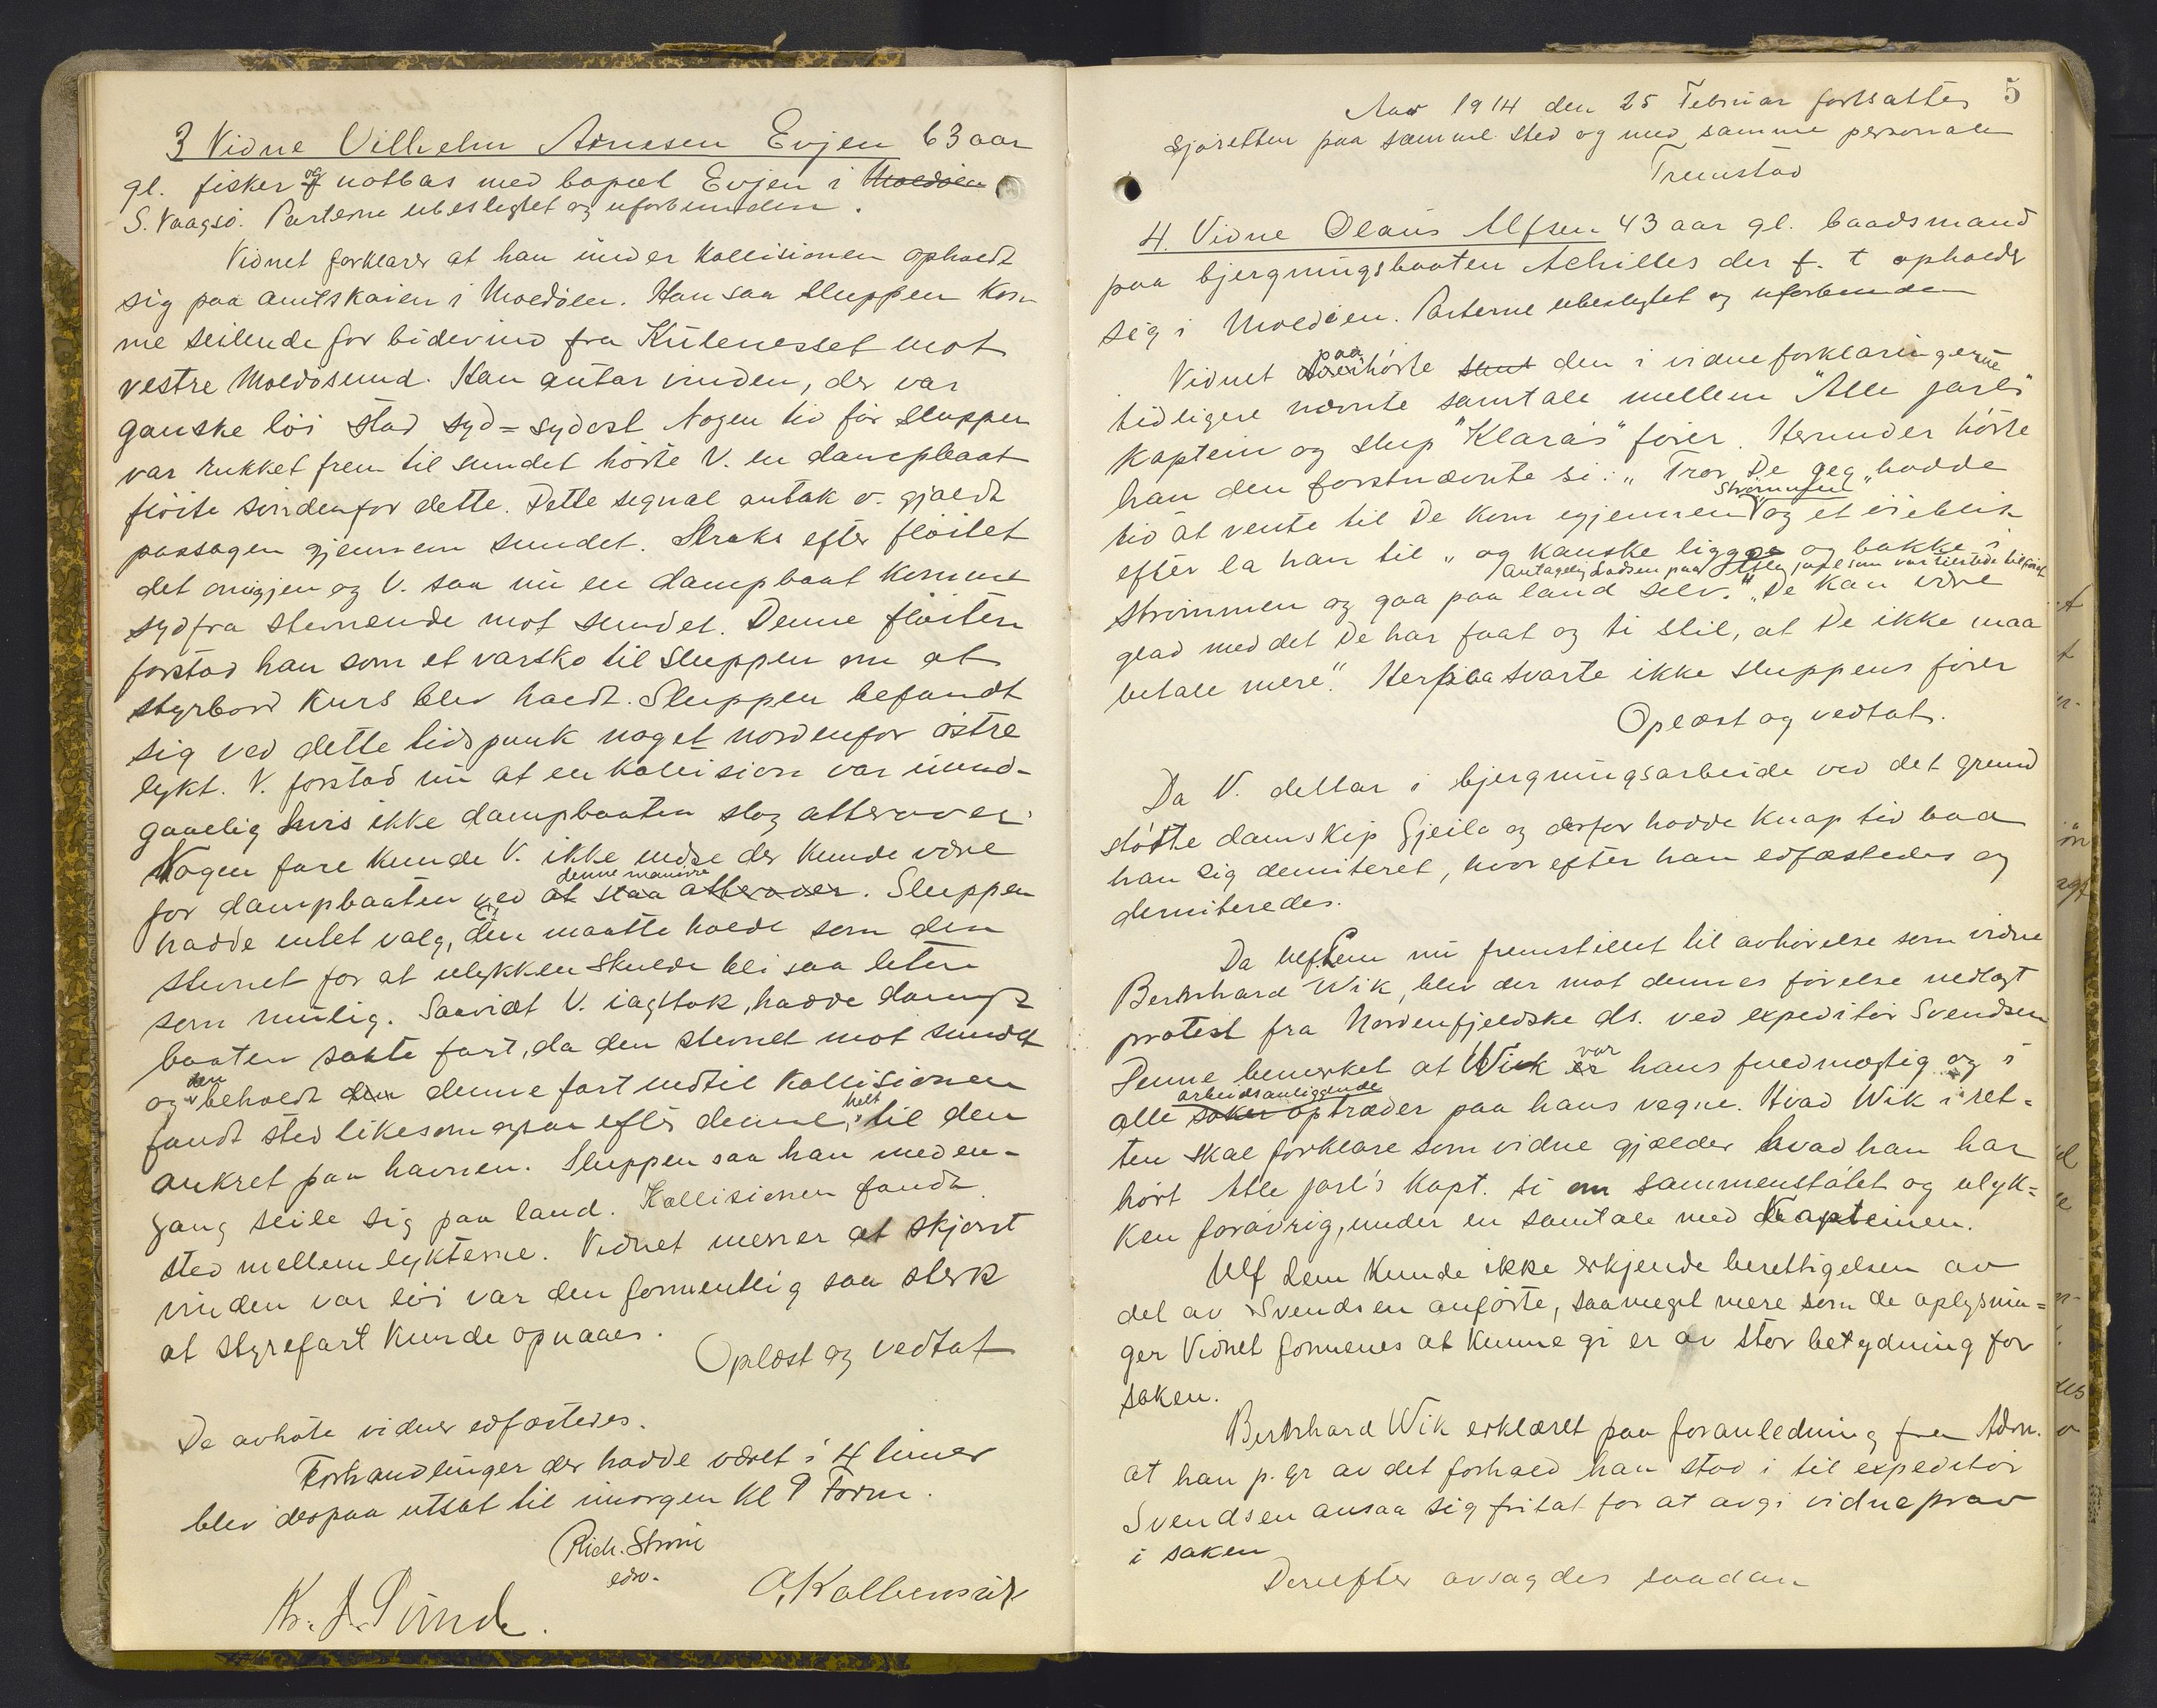 3 Vidne Vilhelm Arnesen Evjen 63 aar
gl. fisker og notbas med bopæl Evjen i Moldöen
S. Vaagsö. Parterne ubeslegtet og uforbunden.
Vidnet forklarer at han under kollisionen opholdt
sig paa amtskaien i Moldöen. Han saa sluppen kom-
me seilende for bidevind fra Kulenesset mot
vestre Moldösund. Han antar vinden, der var
ganske löi stod syd=sydost. Nogen tid för sluppen
var rukket frem til sundet hörte V. en dampbaat
flöite söndenfor dette. Dette signal antok v. gjaldt
passagen gjennem sundet. Straks efter flöitet
det omigjen og V. saa nu en dampbaat komme
sydfra stevnende mot sundet. Denne flöiten
forstod han som et varsko til sluppen om at
styrbord kurs blev holdt. Sluppen befandt
sig ved dette tidspunk noget nordenfor östre
lykt. V. forstod nu at en kollision var uund-
gaaelig hvis ikke dampbaaten slog atterover.
Nogen fare kunde V. ikke indse der kunde være
denne manövre
for dampbaaten ved at slaa atterover. Sluppen
hadde intet valg, den maatte holde som den
stevnet for at ulykken skulde bli saa liten
som mulig. Saavidt V. iagttok, hadde damp
baaten sakte fart, da den stevnet mot sundet
og den beholdt den denne fart indtil kollisionen
fandt sted likesom ogsaa efter denne, helt til den
ankret paa havnen. Sluppen saa han med en-
gang seile sig paa land. Kollisionen fandt
sted mellem lykterne. Vidnet mener at skjönt
vinden var löi var den formentlig saa sterk
at styrefart kunde opnaaes.
Oplæst og vedtat
De avhörte vidner edfæstedes.
Forhandlinger der hadde været i 4 timer
blev derpaa utsat til imorgen kl 9 Form.
Rich. Ström
edv.
Kr. J. Sunde.
5
Aar 1914 den 25 Februar fortsattes
sjöretten paa samme sted og med samme personale
Tremstad
4. Vidne Olaus Alfsen 43 aar gl. baadsmand
paa bjergningsbaaten Achilles der f. t opholder
sig i Moldöen. Parterne ubeslegtet og uforbunden
paa
Vidnet hörte den i vidneforklaringerne
tidligere nævnte samtale mellem "Atle Jarls"
kaptein og slup "Klara's" förer. Herunder hörte
han den förstnævnte si: "Tror De jeg hadde
Strömmen
tid at vente til De kom igjennem" og et öieblik
efter la han til "og kanske ligge og bakke i
antagelig Lodsen paa Atle Jarl som var tilstede tilföiet
strömmen og gaa paa land selv." "De kan være
glad med det De har faat og ti stil, at De ikke maa
betale mere." Herpaa svarte ikke sluppens förer
Oplæst og vedtat.
Da V. deltar i bjergningsarbeide ved det grund
stötte damskip Gjeilo og derfor hadde knap tid bad
han sig demiteret, hvorefter han edfæstedes og
demiteredes.
Da Ulf Lem nu fremstillet til avhörelse som vidne
Bernhard Wik, blev der mot dennes förelse nedlagt
protest fra Nordenfjeldske ds. ved expeditör Svendsen
Denne bemerket at Wik var hans fuldmægtig og i
arbeidsanliggende
alle saker optræder paa hans vegne. Hvad Wik i ret=
ten skal forklare som vidne gjælder hvad han har
hört Atle Jarl's kapt. si om sammenstötet og ulyk=
ken forövrig, under en samtale med Kapteinen.
Ulf Lem kunde ikke erkjende berettigelsen av
det av Svendsen anförte, saameget mere som de oplysnin=
ger Vidnet formenes at kunne gi er av stor betydning for
saken.
Bernhard Wik erklæret paa foranledning fra Adm.
at han p. gr av det forhold han stod i til expeditör
Svendsen ansaa sig fritat for at avgi vidneprov
i saken
Derefter avsagdes saadan